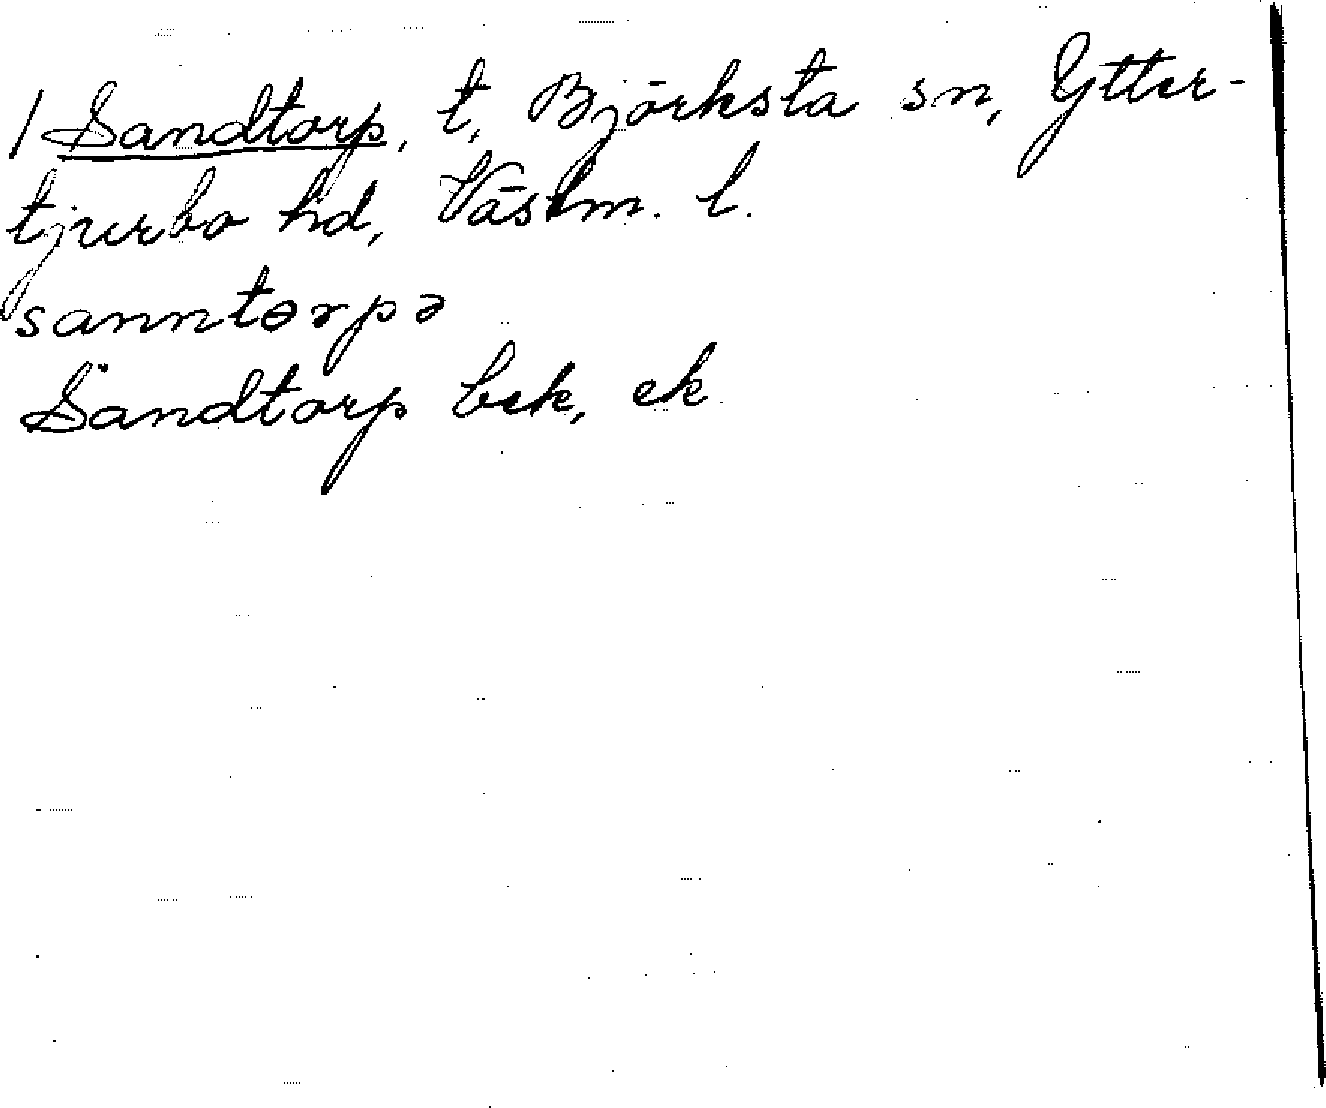 / Sandtorp, t, Björksta sn, Ytter-
tjurbo hd, Västm. l.
sanntɵrpə
Sandtorp bek, ek